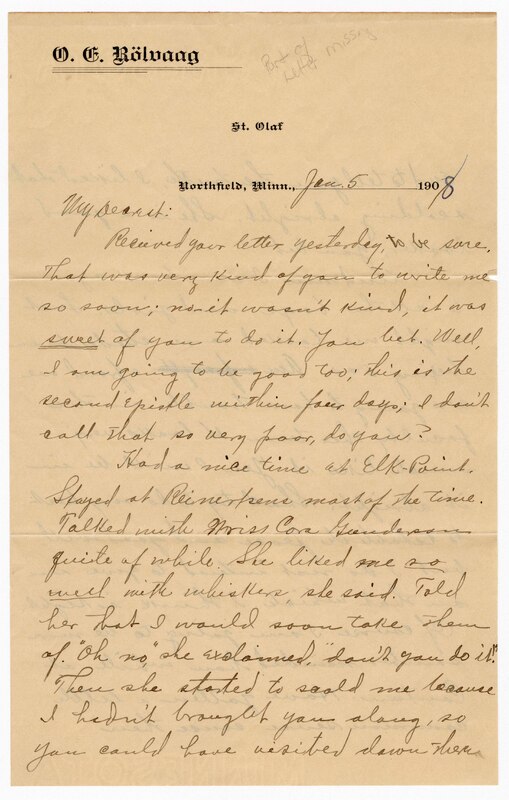 O. E. Rölvaag
Part of
letter missing
St. Olaf
Northfield, Minn., Jan. 5 1908
My Dearest:
Recieved your letter yesterday, to be sure.
That was very kind of you to write me
so soon; no-it wasn't kind, it was
sweet of you to do it. You bet. Well,
I am going to be good too; this is the
second epistle within four days; I don't
call that so very poor, do you?
Had a nice time at Elk-Point.
Stayed at Reinertsens most of the time.
Talked with Miss Cora Gunderson
quite of while. She liked me so
well with whiskers, she said. Told
her that I would soon take them
of. "Oh no," she exclaimed, "don't you do it!"
Then she started to scold me because
I hadn't brought you along, so
you could have visited down there